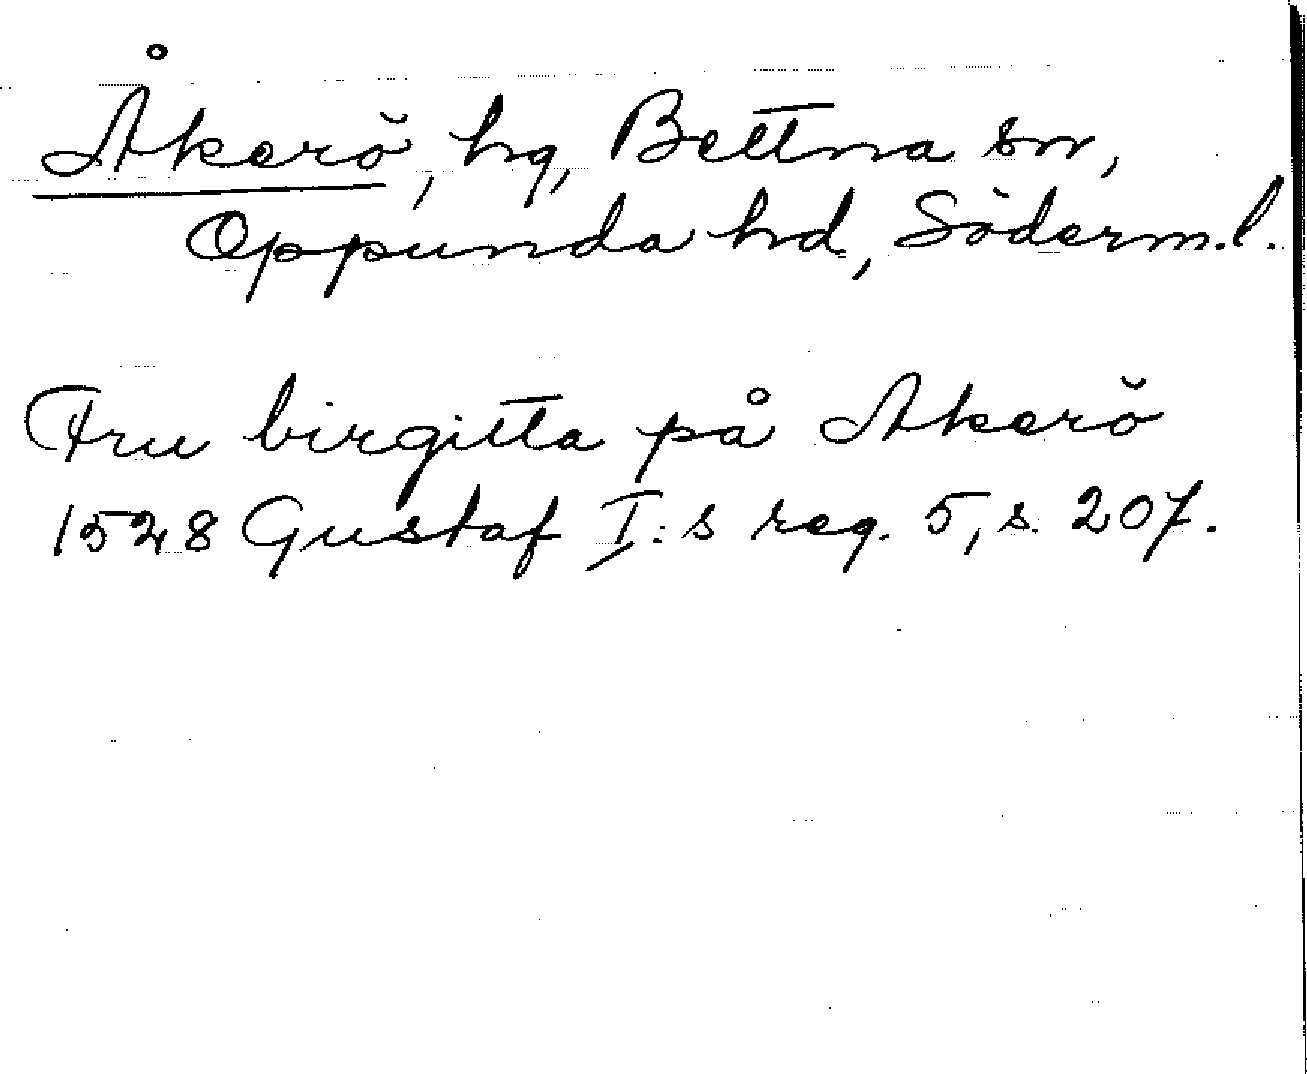 Åkerö, hg, Bettna sn,
Oppunda hd, Söderm.l.
Fru birgitta på Akerö
1528 Gustaf I:s reg. 5, s. 207.